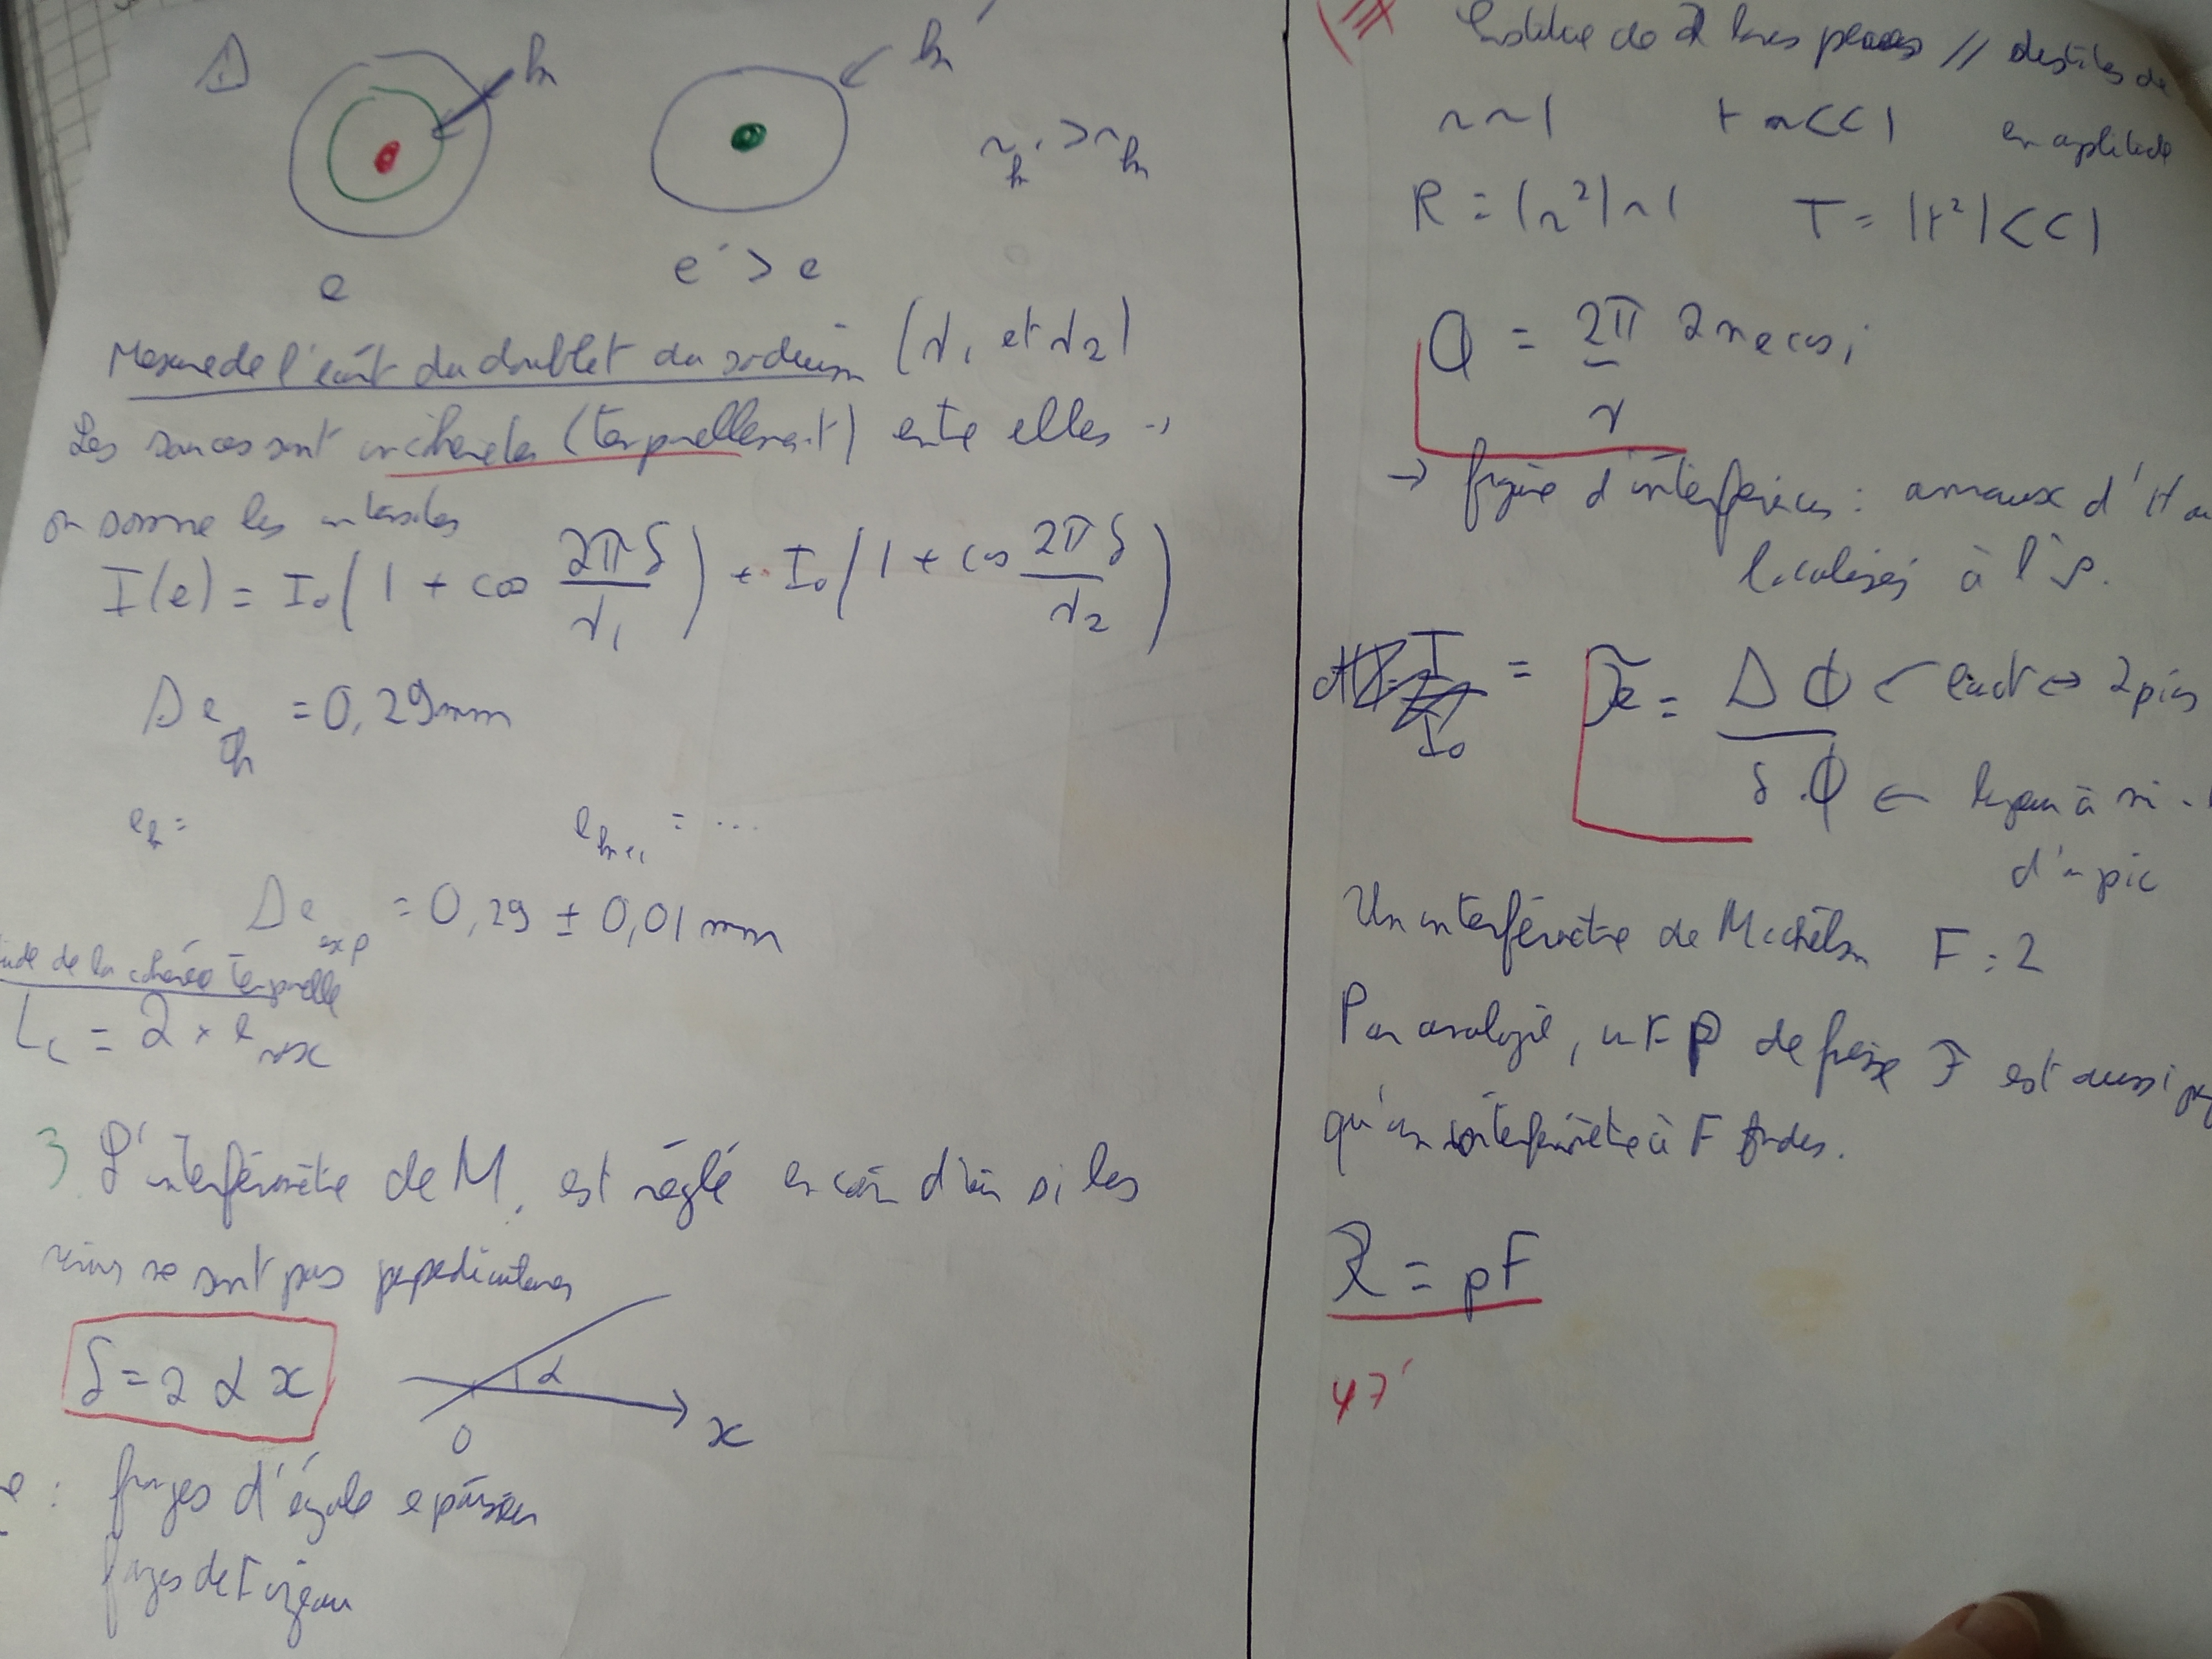 k
k
r_k' > r_k
e
e' > e
Mesure de l'écart du doublet du sodium (λ₁ et λ₂)
Les sources sont incohérentes (temporellement) entre elles →
on somme les intensités
I(e) = I₀(1 + cos 2πδ/λ₁) + I₀(1 + cos 2πδ/λ₂)
Δe_th = 0,29mm
e_k = e_k+1 = ...
Δe_exp = 0,29 ± 0,01 mm
de la cohérence temporelle
L_c = 2 × e_max
3. L'interféromètre de M. est réglé en coin d'air si les
miroirs ne sont pas perpendiculaires
δ = 2 α x
α
O
x
: franges d'égale épaisseur
franges de Fizeau
III de 2 lames // de
r ~ 1 t << 1 en amplitude
R = |r²| ~ 1 T = |t²| << 1
Φ = 2π/λ 2necos i
→ figure d'interférences : anneaux d'
localisés à l'∞.
I/I₀ = F = ΔΦ ← écart ↔ 2 pics
δΦ ← largeur à mi-
d'un pic
Un interféromètre de Michelson F = 2
Par analogie, un FP de finesse F est aussi
qu'un interféromètre à F ondes.
R = pF
47'